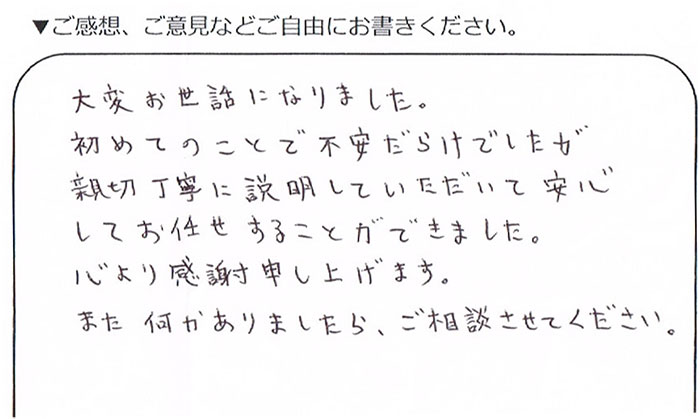 ▼ご感想、ご意見などご自由にお書きください。
大変お世話になりました。
初めてのことで不安だらけでしたが
親切丁寧に説明していただいて安心
してお任せすることができました。
心より感謝申し上げます。
また何かありましたら、ご相談させてください。